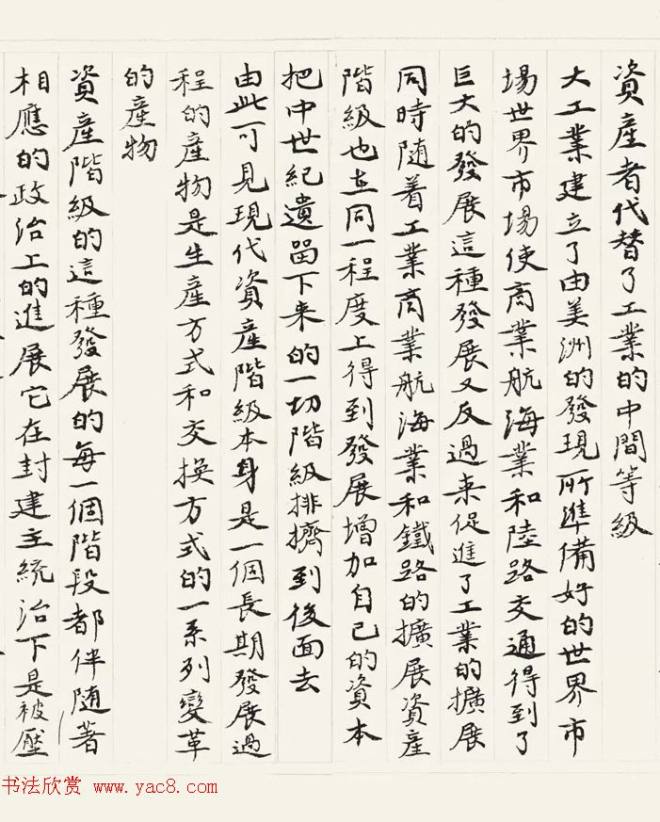 資產者代替了工業的中間等級
大工業建立了由美洲的發現所準備好的世界市
場世界市場使商業航海業和陸路交通得到了
巨大的發展這種發展又反過来促進了工業的擴展
同時随着工業商業航海業和鐵路的擴展資產
階級也在同一程度上得到發展增加自己的資本
把中世紀遺留下来的一切階級排擠到後面去
由此可見現代資產階級本身是一個長期發展過
程的產物是生產方式和交換方式的一系列變革
的產物
資產階級的這種發展的每一個階段都伴随著
相應的政治上的進展它在封建主統治下是被壓
书法欣赏 www.yac8.com